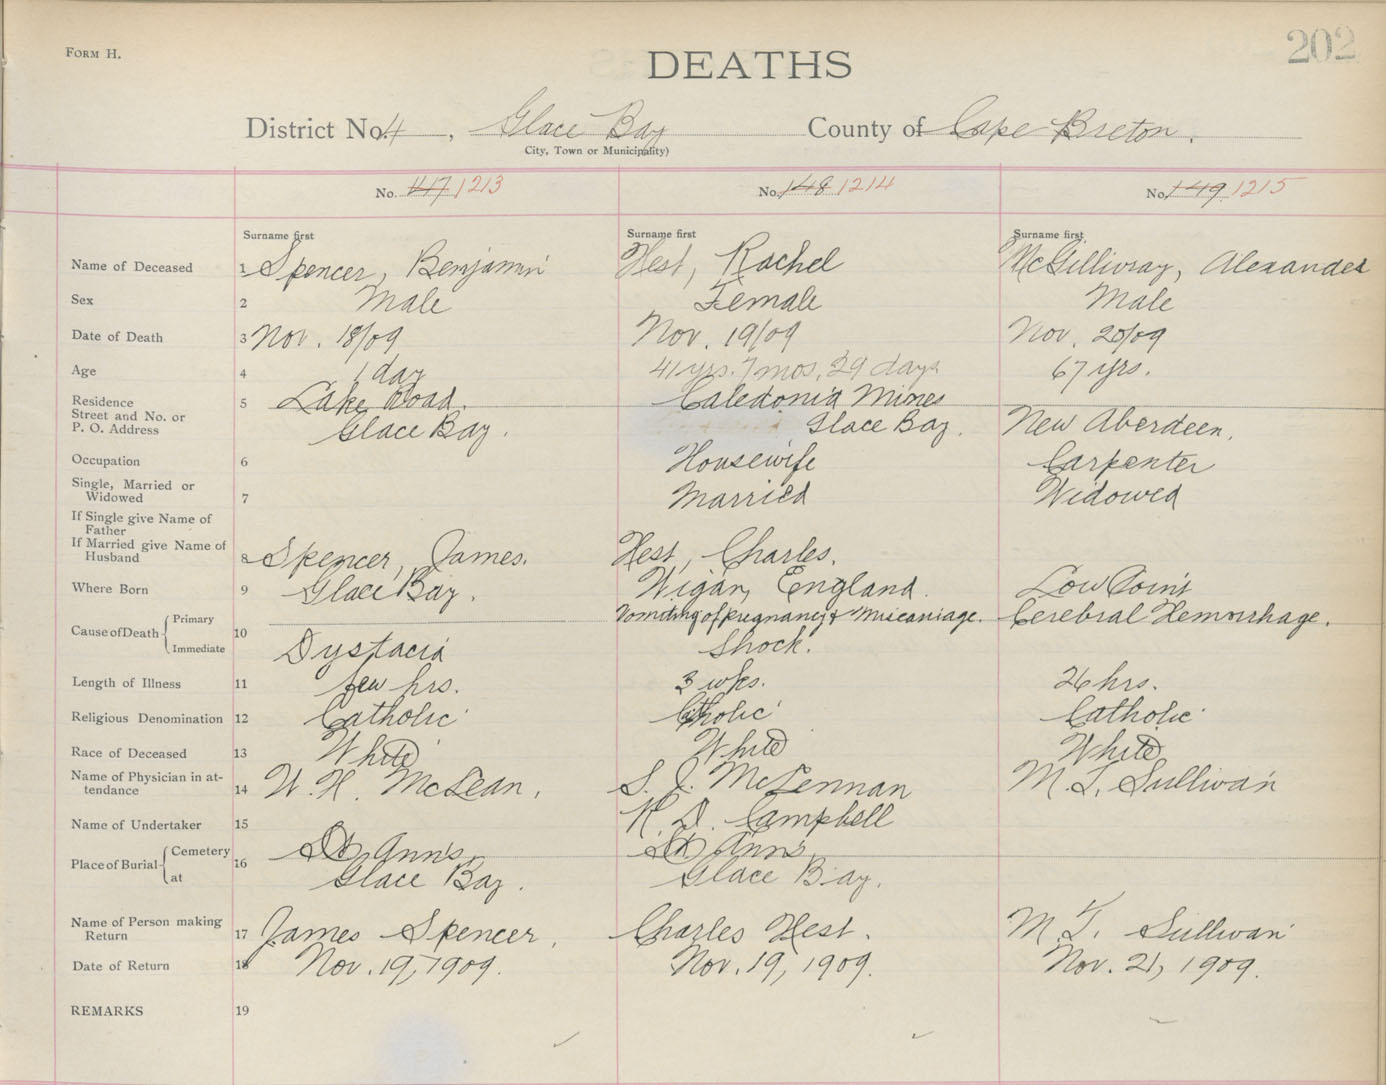 FORM H.
202
DEATHS
District No. 4, Glace Bay County of Cape Breton.
City, Town or Municipality)
No. 147 1213 No. 148 1214 No. 149 1215
Surname first Surname first Surname first
Name of Deceased 1 Spencer, Benjamin Hest, Rachel McGillivray, Alexander
Sex 2 Male Female Male
Date of Death 3 Nov. 18/09 Nov. 19/09 Nov. 20/09
Age 4 1 day 41 yrs. 7 mos, 29 days 67 yrs.
Residence 5 Lake Road. Caledonia Mines
Street and No. or
P. O. Address Glace Bay. Glace Bay. New Aberdeen.
Occupation 6 Housewife Carpenter
Single, Married or
Widowed 7 Married Widowed
If Single give Name of
Father
If Married give Name of
Husband 8 Spencer, James. Hest, Charles.
Where Born 9 Glace Bay. Wigan, England. Low Point
Cause of Death Primary Vomiting of pregnancy & Miscarriage. Cerebral Hemorrhage.
10 Immediate Dystacia Shock.
Length of Illness 11 few hrs. 3 wks. 26 hrs.
Religious Denomination 12 Catholic Catholic Catholic
Race of Deceased 13 White White White
Name of Physician in at-
tendance 14 W. H. McLean. S. J. McLennan M. T. Sullivan
Name of Undertaker 15 K. D. Campbell
Place of Burial Cemetery 16 St Ann's St Ann's
at Glace Bay. Glace Bay.
Name of Person making
Return 17 James Spencer. Charles Hest. M. T. Sullivan
Date of Return 18 Nov. 19, 1909. Nov. 19, 1909. Nov. 21, 1909.
REMARKS 19